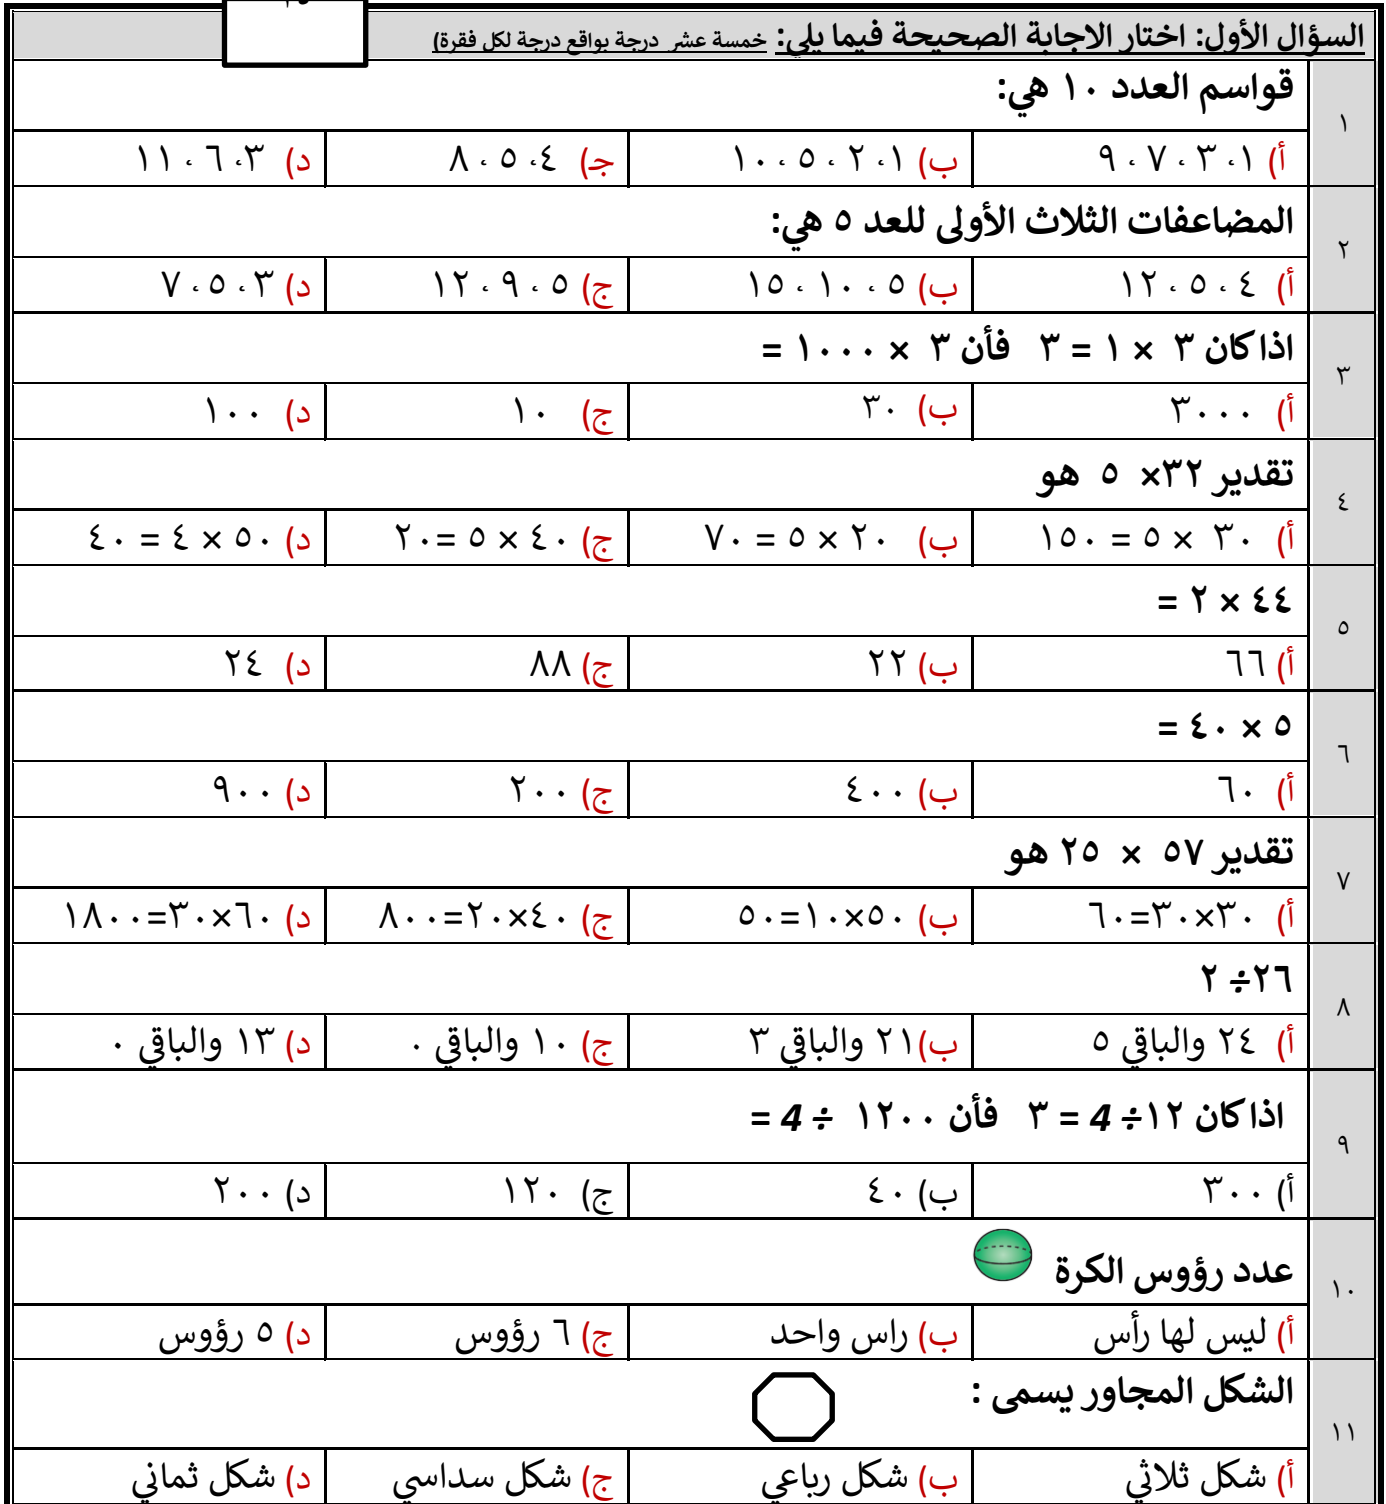 السؤال الأول: اختار الاجابة الصحيحة فيما يلي: خمسة عشر درجة بواقع درجة لكل فقرة)
١
قواسم العدد ١٠ هي:
أ) ١، ٣ ، ٧ ، ٩ ب) ١، ٢ ، ٥ ، ١٠ جـ) ٤، ٥ ، ٨ د) ٣، ٦ ، ١١
٢
المضاعفات الثلاث الأولى للعد ٥ هي:
أ) ٤ ، ٥ ، ١٢ ب) ٥ ، ١٠ ، ١٥ ج) ٥ ، ٩ ، ١٢ د) ٣ ، ٥ ، ٧
٣
اذا كان ٣ × ١ = ٣ فأن ٣ × ١٠٠٠ =
أ) ٣٠٠٠ ب) ٣٠ ج) ١٠ د) ١٠٠
٤
تقدير ٣٢× ٥ هو
أ) ٣٠ × ٥ = ١٥٠ ب) ٢٠ × ٥ = ٧٠ ج) ٤٠ × ٥ =٢٠ د) ٥٠ × ٤ = ٤٠
٥
٤٤ × ٢ =
أ) ٦٦ ب) ٢٢ ج) ٨٨ د) ٢٤
٦
٥ × ٤٠ =
أ) ٦٠ ب) ٤٠٠ ج) ٢٠٠ د) ٩٠٠
٧
تقدير ٥٧ × ٢٥ هو
أ) ٣٠×٣٠=٦٠ ب) ٥٠×١٠=٥٠ ج) ٤٠×٢٠=٨٠٠ د) ٦٠×٣٠=١٨٠٠
٨
٢٦÷ ٢
أ) ٢٤ والباقي ٥ ب)٢١ والباقي ٣ ج) ١٠ والباقي ٠ د) ١٣ والباقي ٠
٩
اذا كان ١٢÷ 4 = ٣ فأن ١٢٠٠ ÷ 4 =
أ) ٣٠٠ ب) ٤٠ ج) ١٢٠ د) ٢٠٠
١٠
عدد رؤوس الكرة
أ) ليس لها رأس ب) راس واحد ج) ٦ رؤوس د) ٥ رؤوس
١١
الشكل المجاور يسمى :
أ) شكل ثلاثي ب) شكل رباعي ج) شكل سداسي د) شكل ثماني